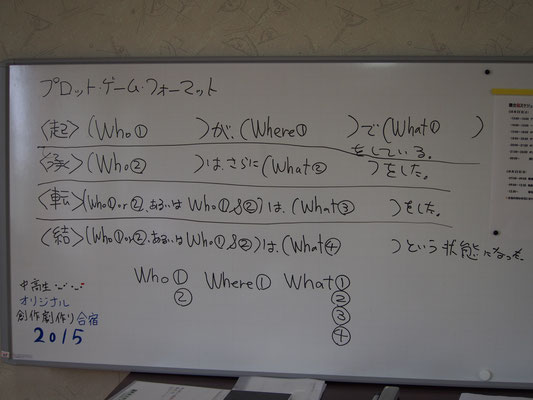 プロット・ゲーム・フォーマット
<起> (Who① )が、(Where① )で(What① )
をしている。
<承> (Who② )は、さらに(What② )をした。
<転> (Who①or②、あるいは Who①&②)は、(What③ )をした。
<結> (Who①or②、あるいは Who①&②)は、(What④ )という状態になった。
Who① Where① What①
② ②
③
④
中高生
オリジナル
創作劇作り合宿
2015